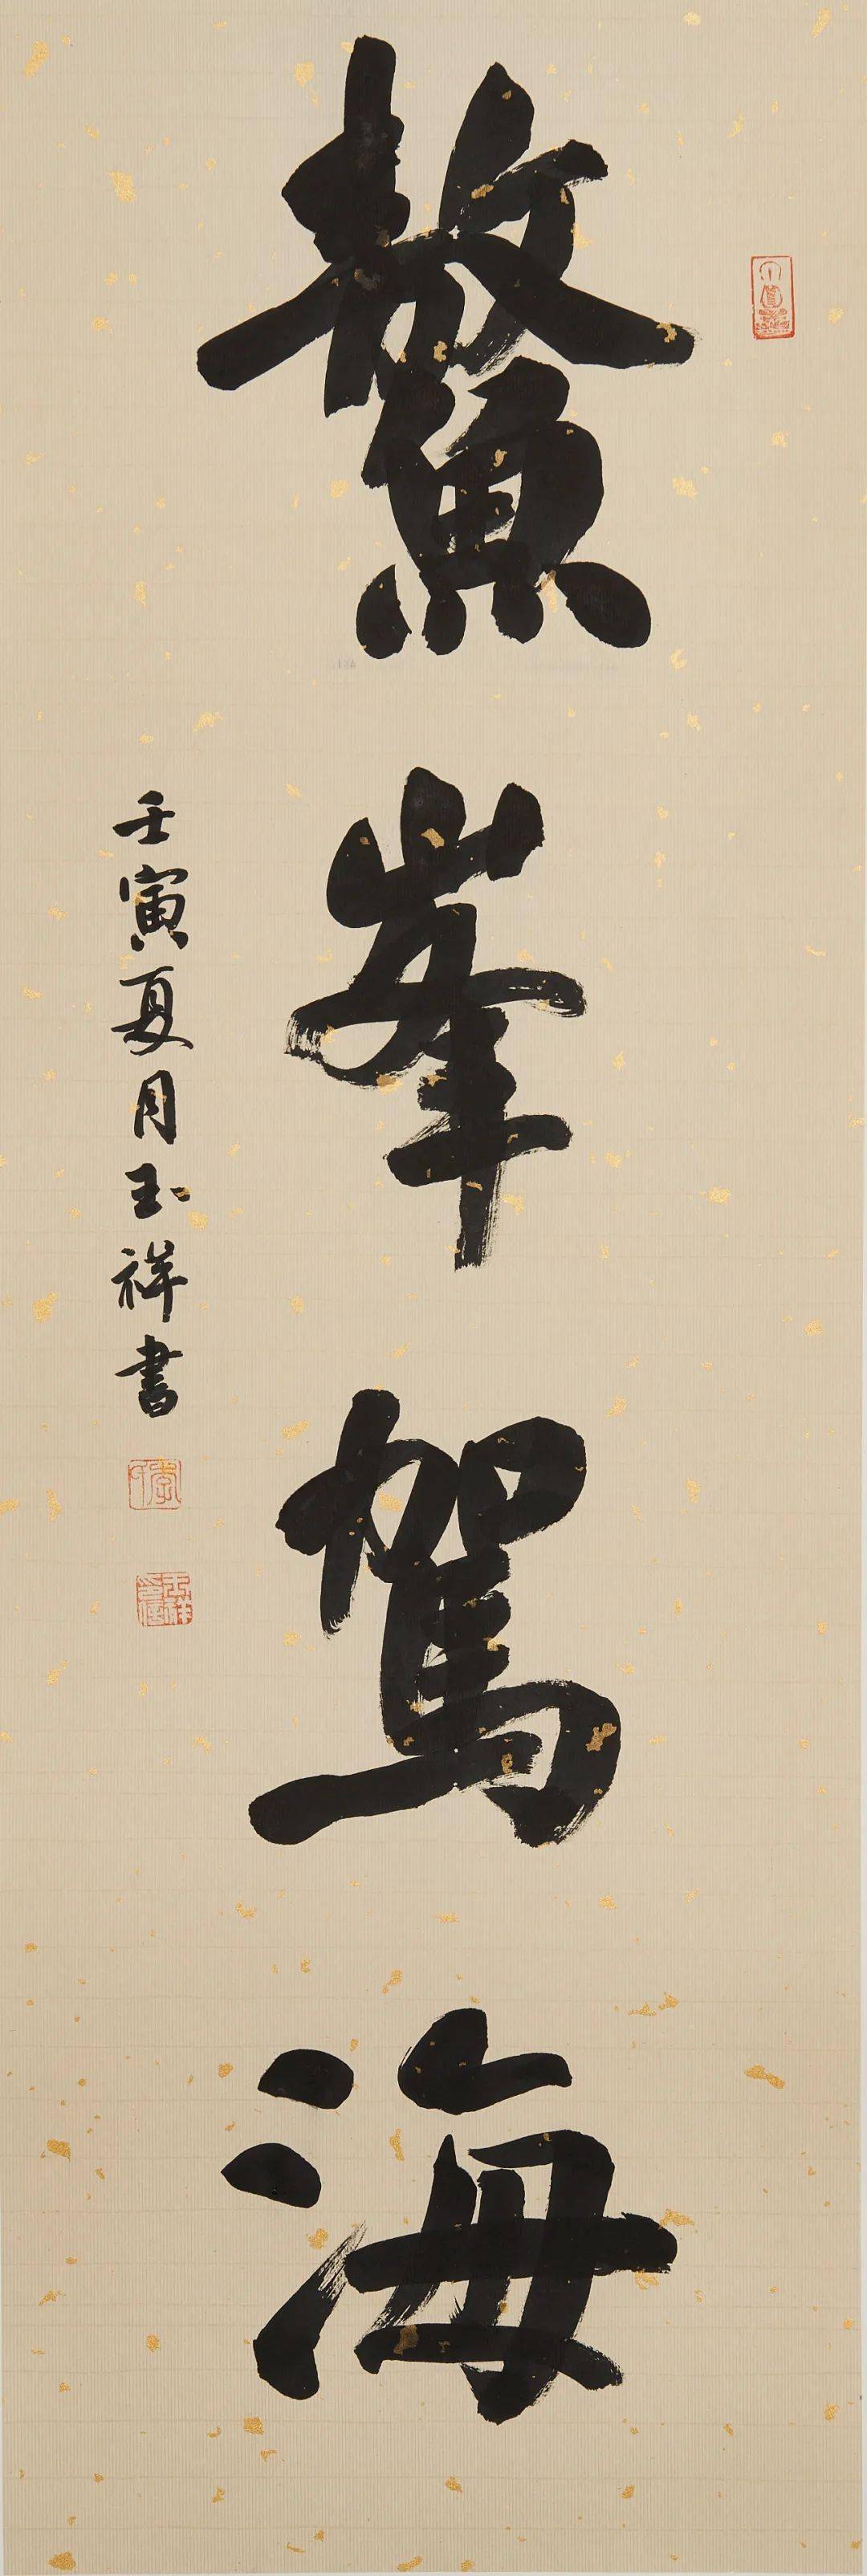 鰲峯駕海
壬寅夏月玉祥書